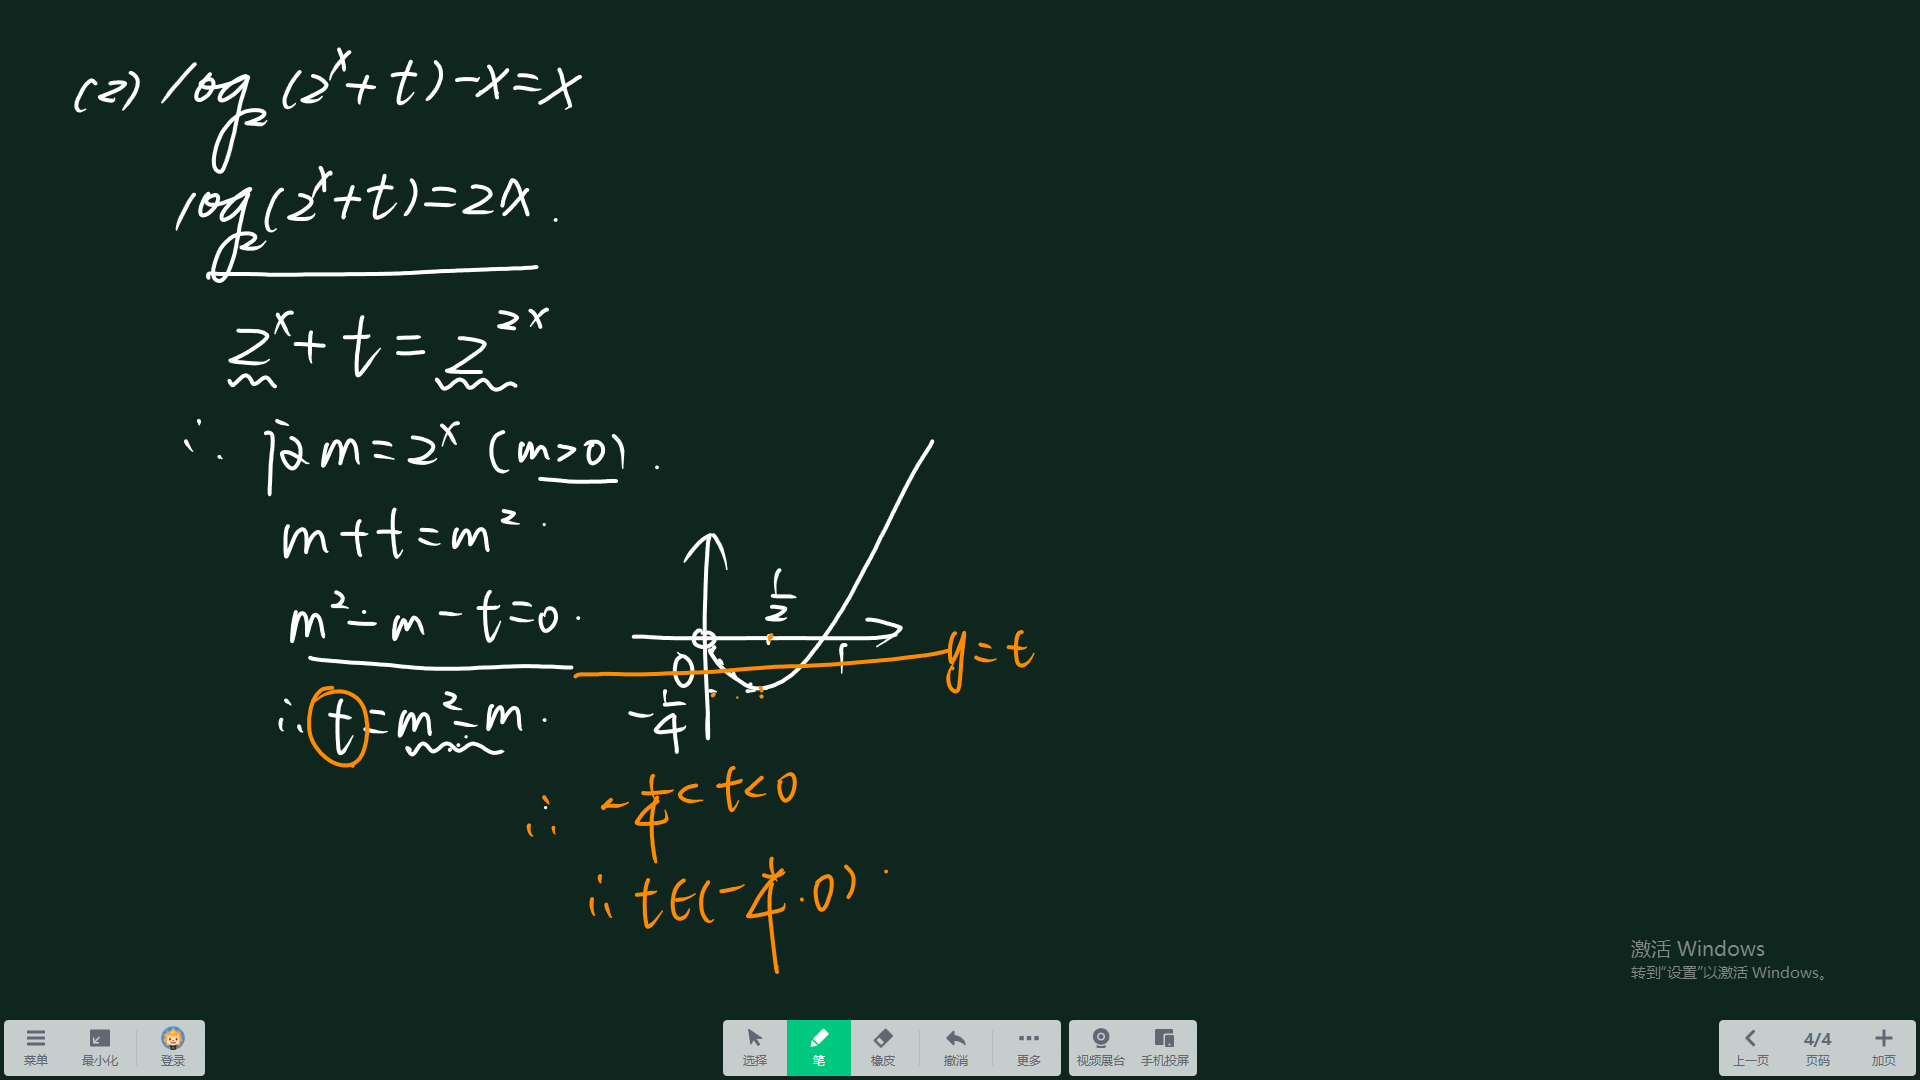 (2) log₂(2ˣ+t)-x=x
log₂(2ˣ+t)=2x.
2ˣ+t=2²ˣ
∴ 设m=2ˣ (m>0).
m+t=m².
m²-m-t=0.
∴ t=m²-m.
1/2
0
1
-1/4
y=t
∴ -1/4<t<0
∴ t∈(-1/4.0).
激活 Windows
转到“设置”以激活 Windows。
菜单 最小化 登录 选择 笔 橡皮 撤消 更多 视频展台 手机投屏 上一页 4/4 页码 加页